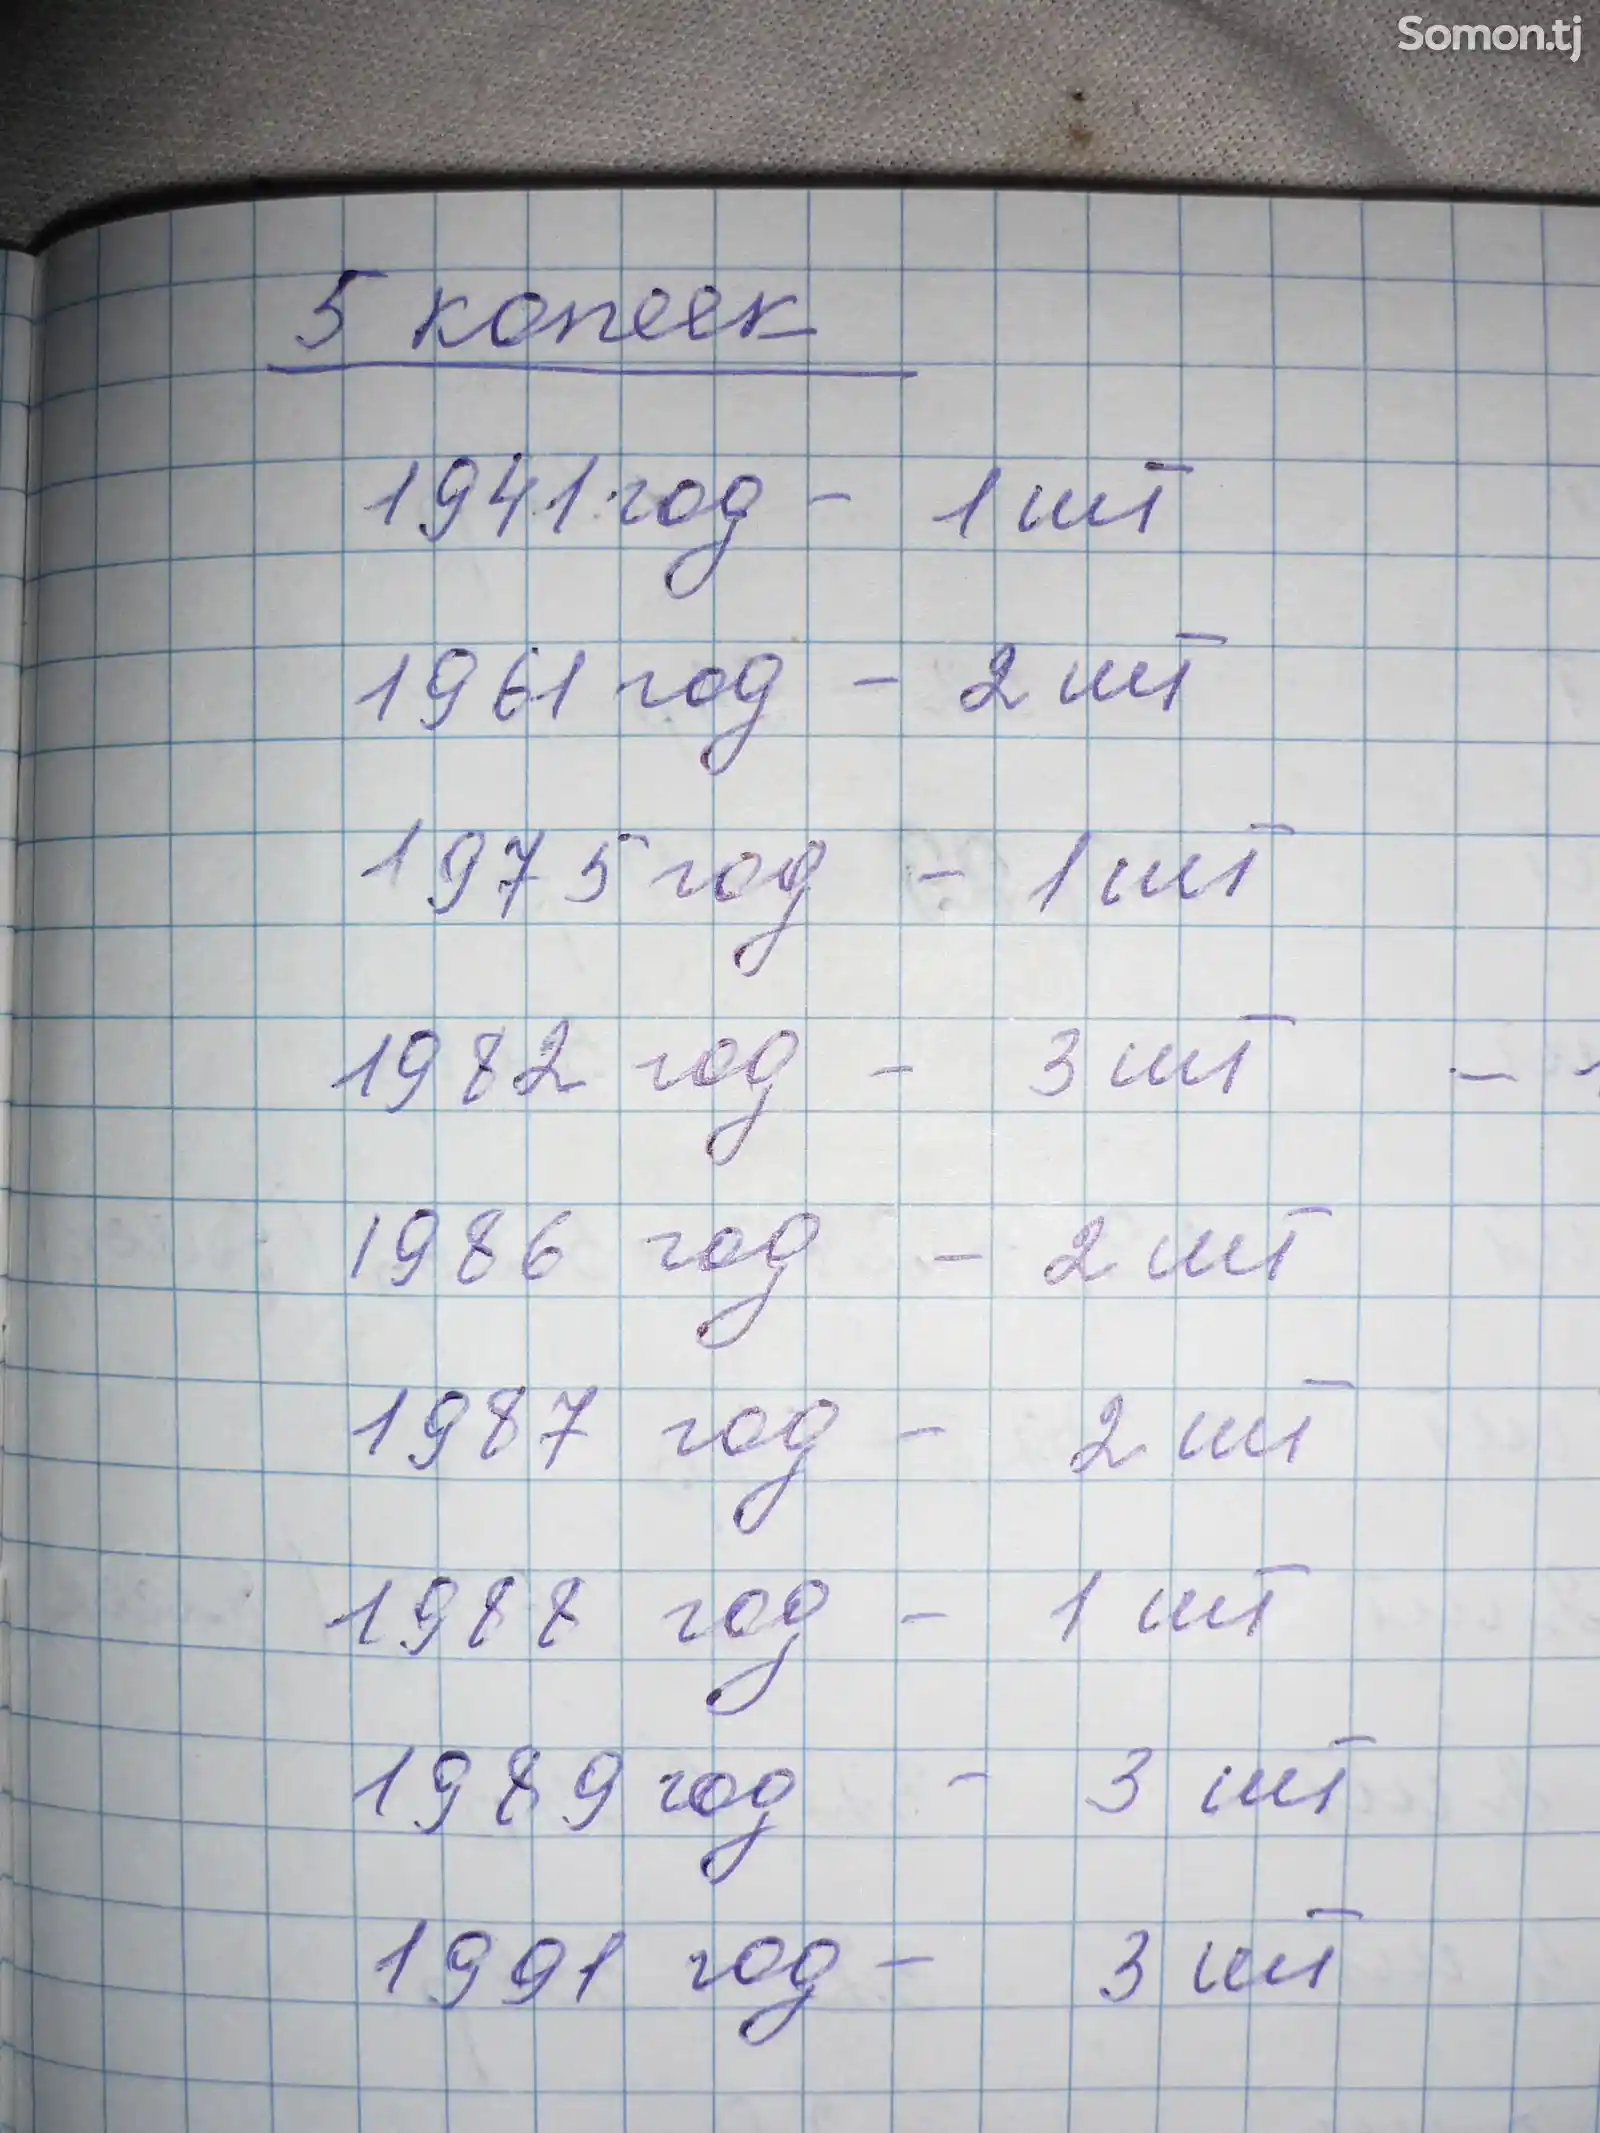 Somon.tj
5 копеек
1941 год - 1 шт
1961 год - 2 шт
1975 год - 1 шт
1982 год - 3 шт -
1986 год - 2 шт
1987 год - 2 шт
1988 год - 1 шт
1989 год - 3 шт
1991 год - 3 шт